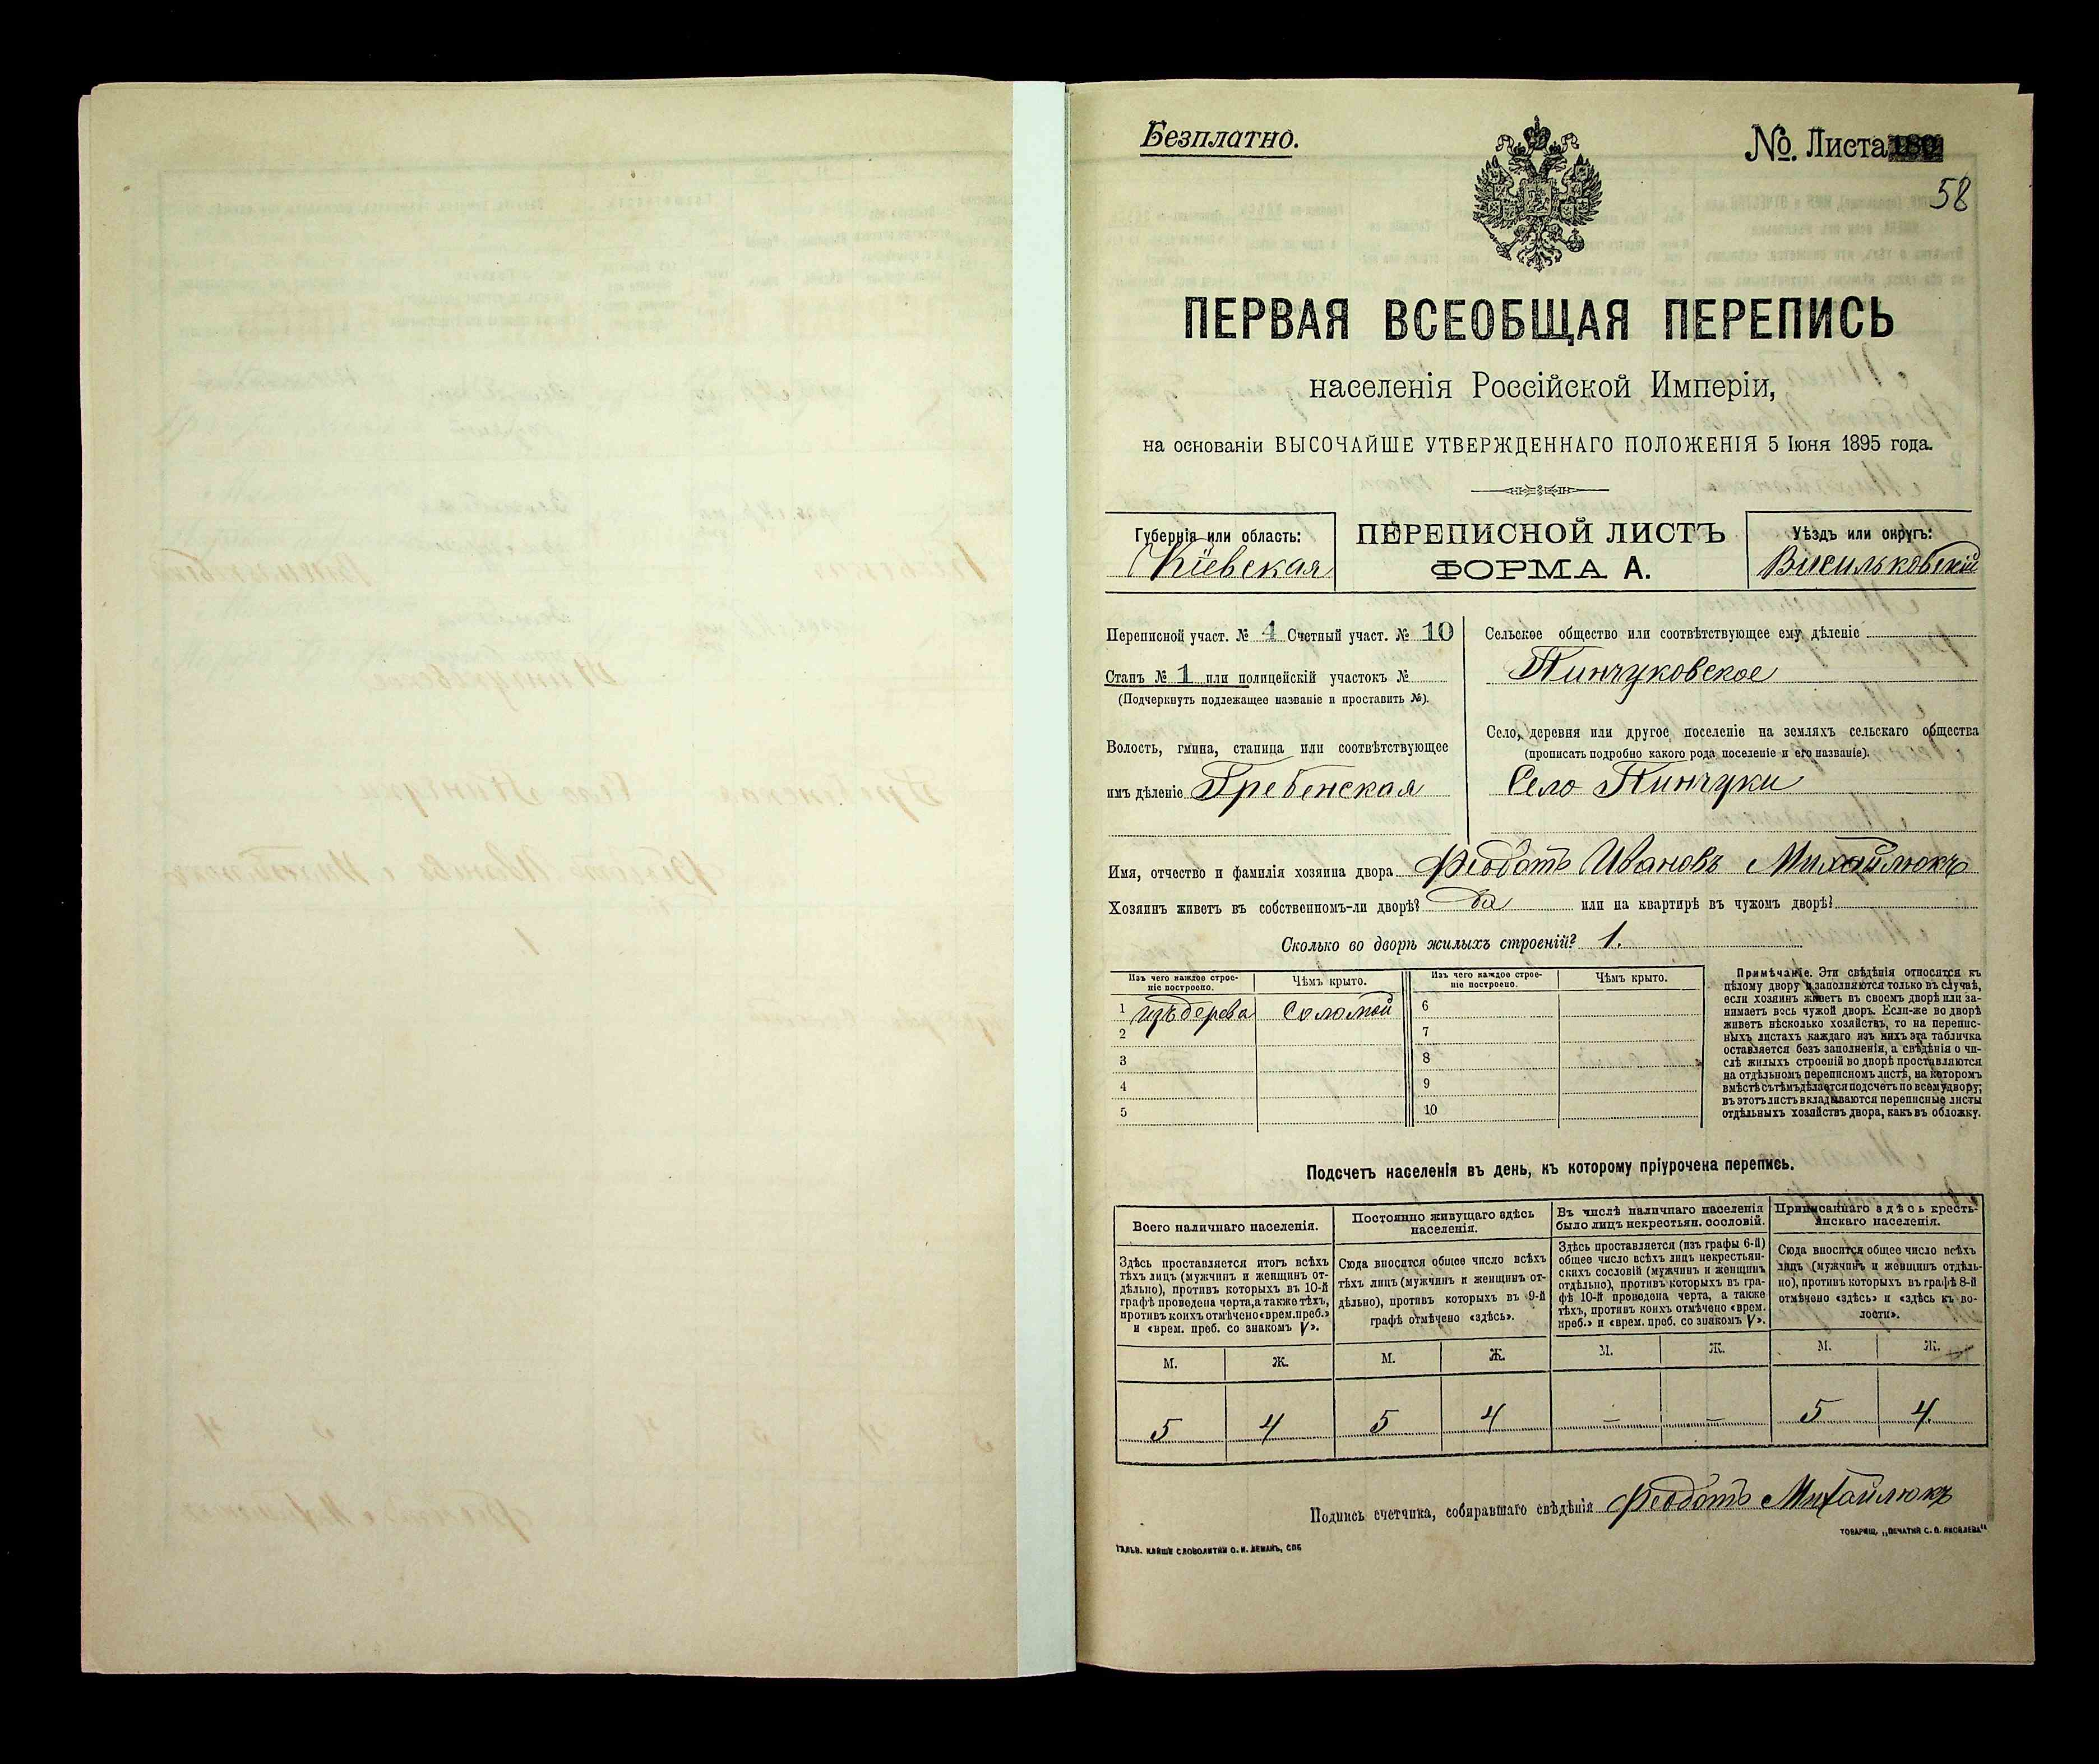 Безплатно.
№. Листа
58
ПЕРВАЯ ВСЕОБЩАЯ ПЕРЕПИСЬ
населенія Россійской Имперіи,
на основаніи ВЫСОЧАЙШЕ УТВЕРЖДЕННАГО ПОЛОЖЕНІЯ 5 Іюня 1895 года.
Губернія или область:
Кіевская
ПЕРЕПИСНОЙ ЛИСТЪ
ФОРМА А.
Уѣздъ или округъ:
Васильковскій
Переписной участ. № 4 Счетный участ. № 10
Станъ № 1 или полицейскій участокъ №
(Подчеркнуть подлежащее названіе и проставить №).
Волость, гмина, станица или соотвѣтствующее
имъ дѣленіе Гребенская
Сельское общество или соотвѣтствующее ему дѣленіе
Пинчуковское
Село, деревня или другое поселеніе на земляхъ сельскаго общества
(прописать подробно какого рода поселеніе и его названіе).
Село Пинчуки
Имя, отчество и фамилія хозяина двора Феодотъ Ивановъ Михайлюкъ
Хозяинъ живетъ въ собственномъ-ли дворѣ? Да или на квартирѣ въ чужомъ дворѣ?
Сколько во дворѣ жилыхъ строеній? 1.
Изъ чего каждое строе-
ніе построено.
Чѣмъ крыто.
Изъ чего каждое строе-
ніе построено.
Чѣмъ крыто.
1 изъ дерева Соломой 6
2 7
3 8
4 9
5 10
Примѣчаніе. Эти свѣдѣнія относятся къ
цѣлому двору и заполняются только въ случаѣ,
если хозяинъ живетъ въ своемъ дворѣ или за-
нимаетъ весь чужой дворъ. Если-же во дворѣ
живетъ нѣсколько хозяйствъ, то на перепис-
ныхъ листахъ каждаго изъ нихъ эта табличка
оставляется безъ заполненія, а свѣдѣнія о чи-
слѣ жилыхъ строеній во дворѣ проставляются
на отдѣльномъ переписномъ листѣ, на которомъ
вмѣстѣ съ тѣмъ дѣлается подсчетъ по всему двору;
въ этотъ листъ вкладываются переписные листы
отдѣльныхъ хозяйствъ двора, какъ въ обложку.
Подсчетъ населенія въ день, къ которому пріурочена перепись.
Всего наличнаго населенія.
Здѣсь проставляется итогъ всѣхъ
тѣхъ лицъ (мужчинъ и женщинъ от-
дѣльно), противъ которыхъ въ 10-й
графѣ проведена черта, а также тѣхъ,
противъ коихъ отмѣчено «врем. преб.»
и «врем. преб. со знакомъ V».
Постоянно живущаго здѣсь
населенія.
Сюда вносится общее число всѣхъ
тѣхъ лицъ (мужчинъ и женщинъ от-
дѣльно), противъ которыхъ въ 9-й
графѣ отмѣчено «здѣсь».
Въ числѣ наличнаго населенія
было лицъ некрестьян. сословій.
Здѣсь проставляется (изъ графы 6-й)
общее число всѣхъ лицъ некрестьян-
скихъ сословій (мужчинъ и женщинъ
отдѣльно), противъ которыхъ въ гра-
фѣ 10-й проведена черта, а также
тѣхъ, противъ коихъ отмѣчено «врем.
преб.» и «врем. преб. со знакомъ V».
Приписаннаго здѣсь кресть-
янскаго населенія.
Сюда вносится общее число всѣхъ
лицъ (мужчинъ и женщинъ отдѣль-
но), противъ которыхъ въ графѣ 8-й
отмѣчено «здѣсь» и «здѣсь къ во-
лости».
М. Ж. М. Ж. М. Ж. М. Ж.
5 4 5 4 — — 5 4.
Подпись счетчика, собиравшаго свѣдѣнія Феодотъ Михайлюкъ
ГАЛЬВ. КЛИШЕ СЛОВОЛИТНИ О. И. ЛЕМАНЪ, СПБ
ТОВАРИЩ. „ПЕЧАТНЯ С. П. ЯКОВЛЕВА“